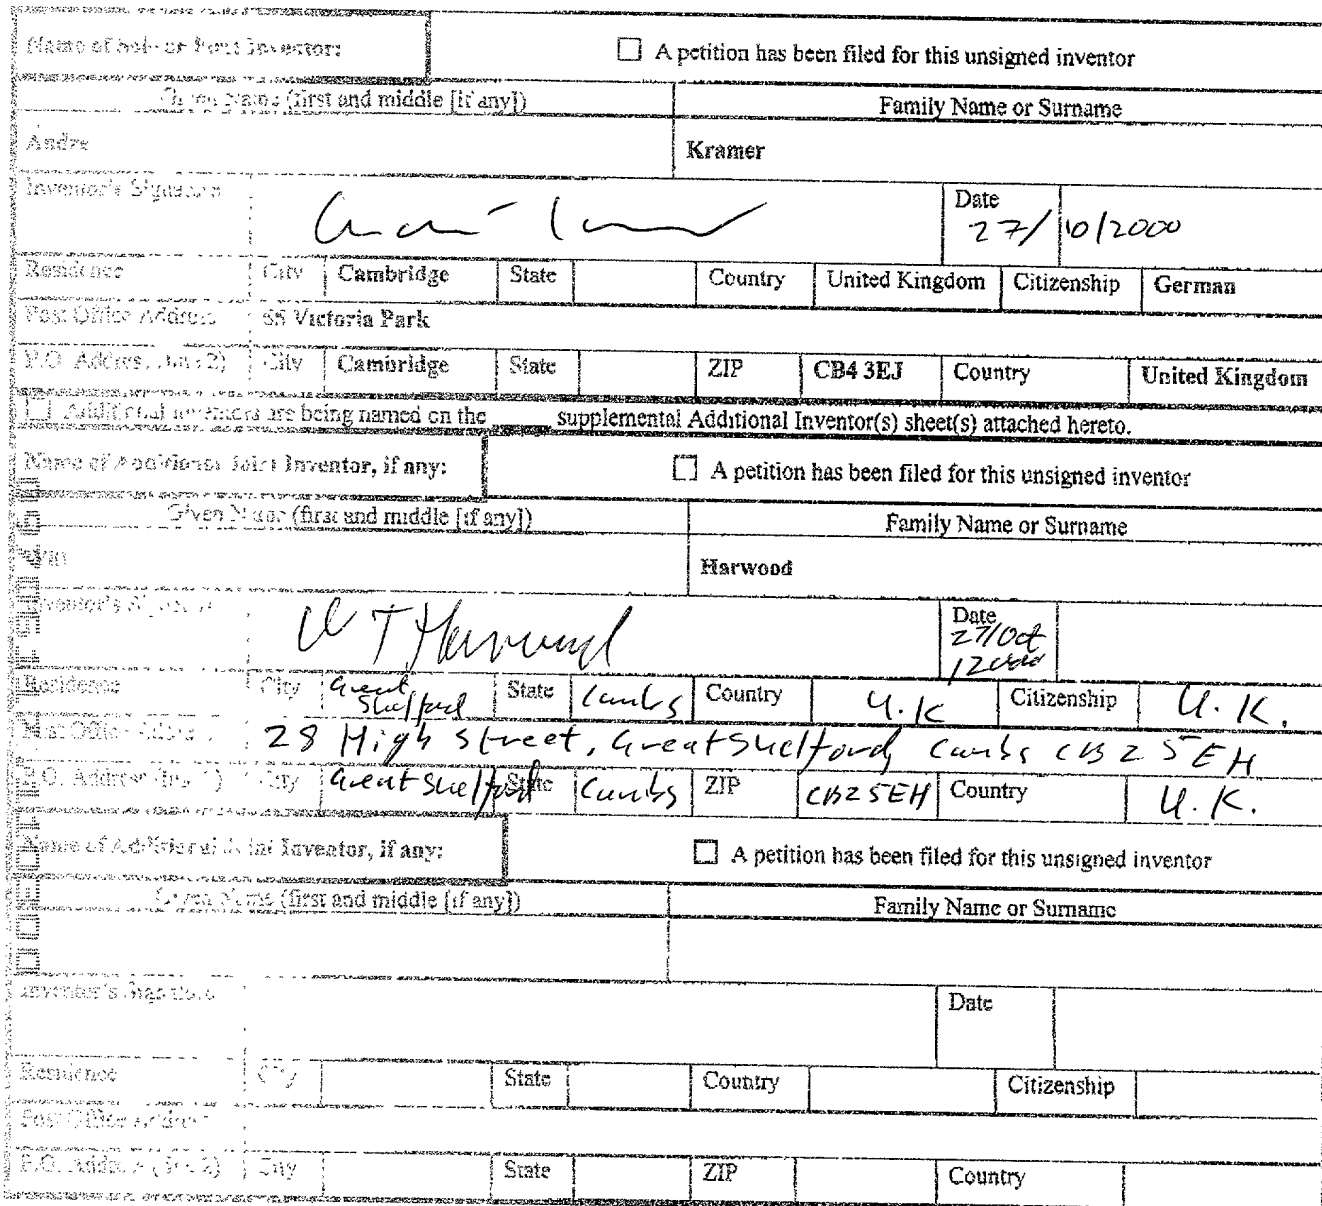 Name of Sole or First Inventor: ☐ A petition has been filed for this unsigned inventor
Given Name (first and middle [if any]) Family Name or Surname
Andre Kramer
Inventor's Signature Date 27/10/2000
Residence City Cambridge State Country United Kingdom Citizenship German
Post Office Address Victoria Park
P.O. Address (line 2) City Cambridge State ZIP CB4 3EJ Country United Kingdom
☐ Additional inventors are being named on the ____ supplemental Additional Inventor(s) sheet(s) attached hereto.
Name of Additional Joint Inventor, if any: ☐ A petition has been filed for this unsigned inventor
Given Name (first and middle [if any]) Family Name or Surname
Harwood
Inventor's Signature W T Harwood Date 27/Oct /2000
Residence City Great Shelford State Cambs Country U.K Citizenship U.K.
Post Office Address 28 High Street, Great Shelford, Cambs CB2 5EH
P.O. Address (line 2) City Great Shelford State Cambs ZIP CB2 5EH Country U.K.
Name of Additional Joint Inventor, if any: ☐ A petition has been filed for this unsigned inventor
Given Name (first and middle [if any]) Family Name or Surname
Inventor's Signature Date
Residence City State Country Citizenship
Post Office Address
P.O. Address (line 2) City State ZIP Country